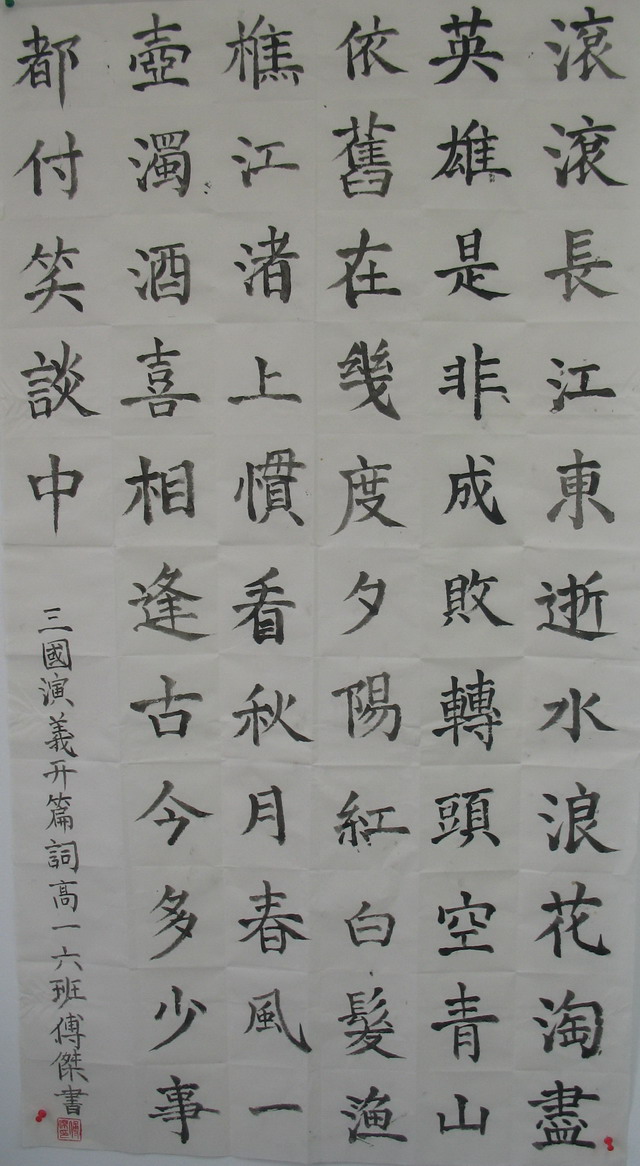 滾滾長江東逝水浪花淘盡
英雄是非成敗轉頭空青山
依舊在幾度夕陽紅白髮漁
樵江渚上慣看秋月春風一
壺濁酒喜相逢古今多少事
都付笑談中
三國演義开篇詞高一六班傅傑書